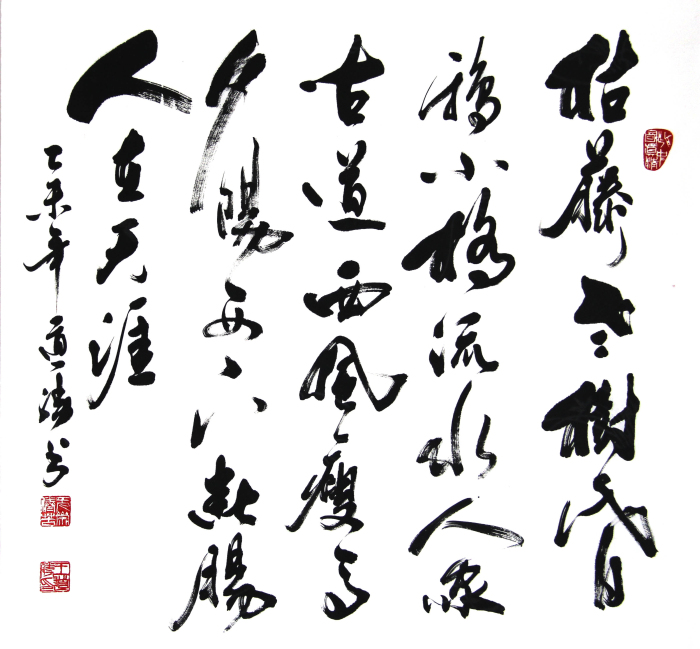 枯藤老樹昏
鴉小橋流水人家
古道西風瘦馬
夕陽西下斷腸
人在天涯
乙未年道书